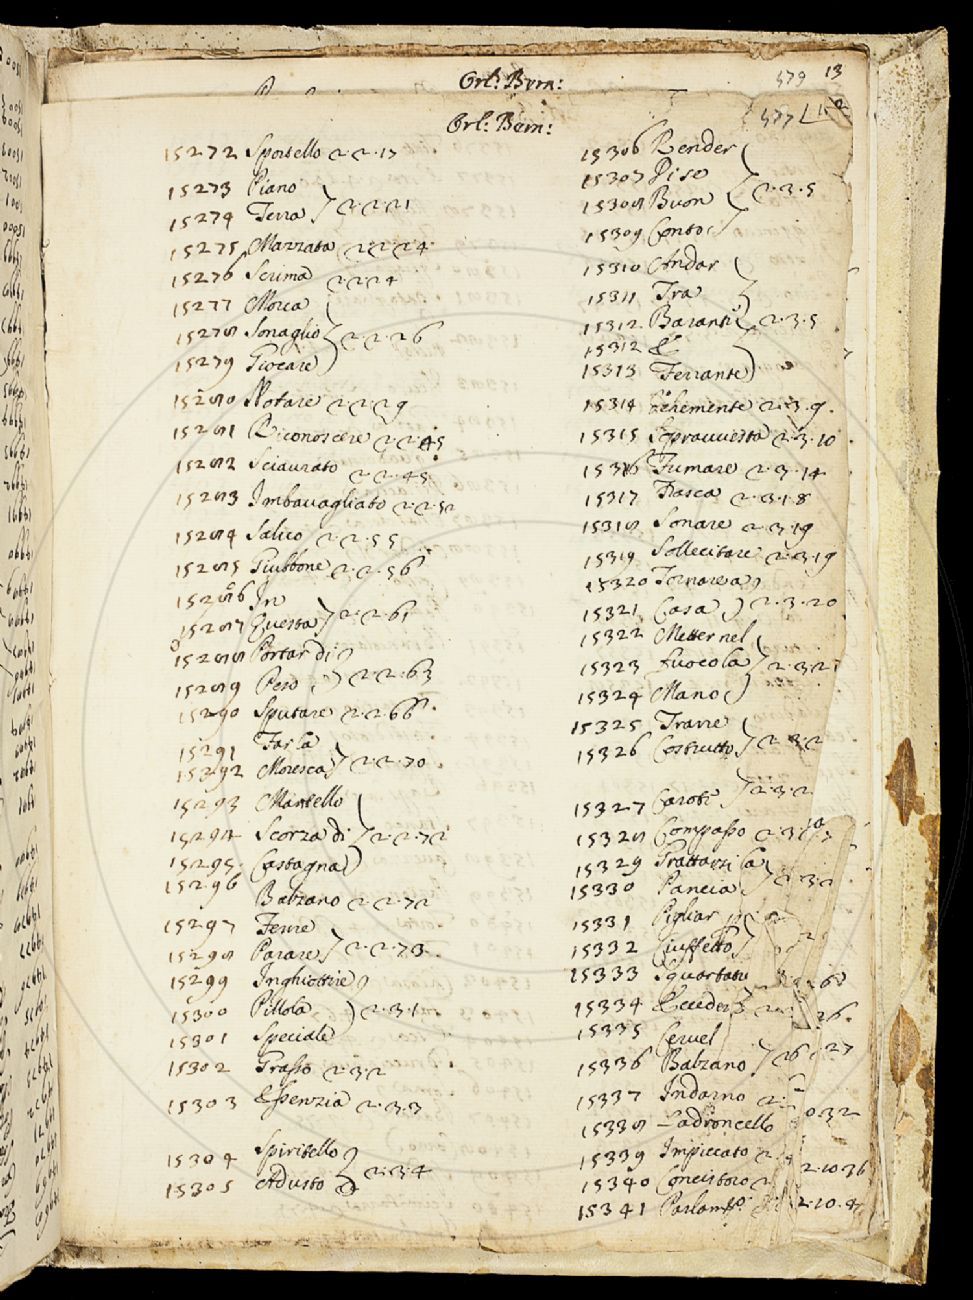 Orl: Bern:
579 13
Orl: Bern:
577
15272 Sportello 2·2·17
15273 Piano
15274 Terra } 2·2·21
15275 Mazzata 2·2·24
15276 Scrima 2·2·24
15277 Mosca
15278 Sonaglio } 2·2·26
15279 Giocare
15280 Notare 2·2·29
15281 Riconoscere 2·2·45
15282 Sciaurato 2·2·45
15283 Imbavagliato 2·2·52
15284 Salico 2·2·55
15285 Giubbone 2·2·56
15286 In
15287 Questa } 2·2·61
15288 Portar di
15289 Peso } 2·2·63
15290 Sputare 2·2·66
15291 Far la
15292 Moresca } 2·2·70
15293 Mantello
15294 Scorza di } 2·2·72
15295 Castagna
15296
Balzano 2·2·72
15297 Ferire
15298 Parare } 2·2·73
15299 Inghiottire
15300 Pillola } 2·3·1
15301 Speciale
15302 Grasso 2·3·2
15303 Essenzia 2·3·3
15304 Spiritello
15305 Adusto } 2·3·4
15306 Render
15307 Viso
15308 Buon } 2·3·5
15309 Conto
15310 Andar
15311 Tra
15312 Baranti } 2·3·5
15312 &
15313 Ferrante
15314 Vehemente 2·3·9
15315 Sopravvesta 2·3·10
15316 Fumare 2·3·14
15317 Frasca 2·3·18
15318 Sonare 2·3·19
15319 Sollecitare 2·3·19
15320 Tornare a
15321 Casa } 2·3·20
15322 Metter nel
15323 fuoco la } 2·3·21
15324 Mano
15325 Trarre
15326 Costrutto } 2·3·2
15327 Carote } 2·3·2
15328 Compasso 2·3·
15329 Grattarsi la
15330 Pancia } 2·3·2
15331 Pigliar
15332 Ciuffetto
15333 Squartati
15334 Ecceder
15335 Cervel
15336 Balzano } 26 · 27
15337 Indarno
15338 Ladroncello 10·32
15339 Impiccato
15340 Concistoro 2·10·36
15341 2·10·4